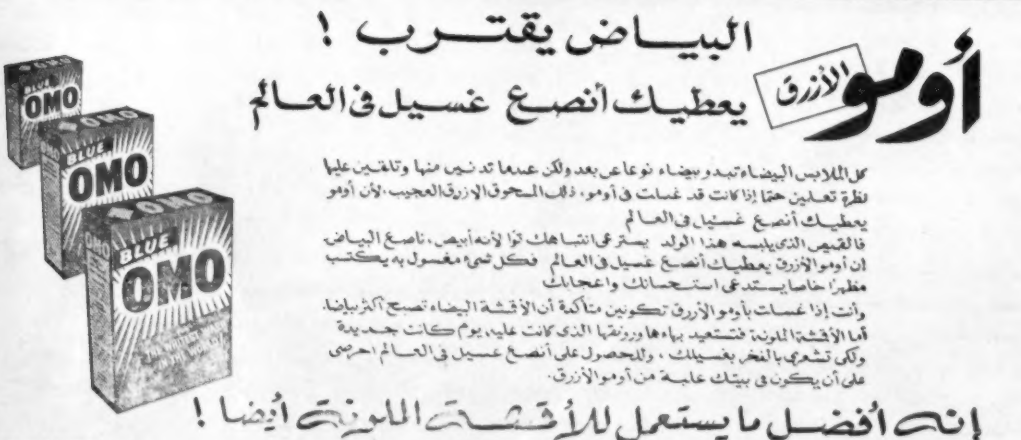 البياض يقترب !
أومو الأزرق يعطيك أنصع غسيل في العالم
كل الملابس البيضاء تبدو بيضاء نوعا عن بعد ولكن عندما تدنين منها وتلقين عليها
نظرة تعلمين حتما إذا كانت قد غسلت في أومو، ذلك المسحوق الازرق العجيب. لأن أومو
يعطيك أنصع غسيل في العالم
فالقميص الذي يلبسه هذا الولد يسترعى انتباهك توا لأنه أبيض، ناصع البياض.
إن أومو الأزرق يعطيك أنصع غسيل في العالم فكل شيء مغسول به يكتسب
مظهرا خاصا يستدعى استحسانك واعجابك
وأنت إذا غسلت بأومو الأزرق تكونين متأكدة أن الأقمشة البيضاء تصبح أكثر بياضا.
أما الأقمشة الملونة فتستعيد بهاءها ورونقها الذي كانت عليه، يوم كانت جديدة
ولكى تشعرى بالفخر بغسيلك ، وللحصول على أنصع غسيل في العالم احرصى
على أن يكون في بيتك علبة من أومو الأزرق.
إنه أفضل ما يستعمل للأقمشة الملونة أيضا !
BLUE
OMO
OMO
BLUE
OMO
OMO
OMO
BLUE
OMO